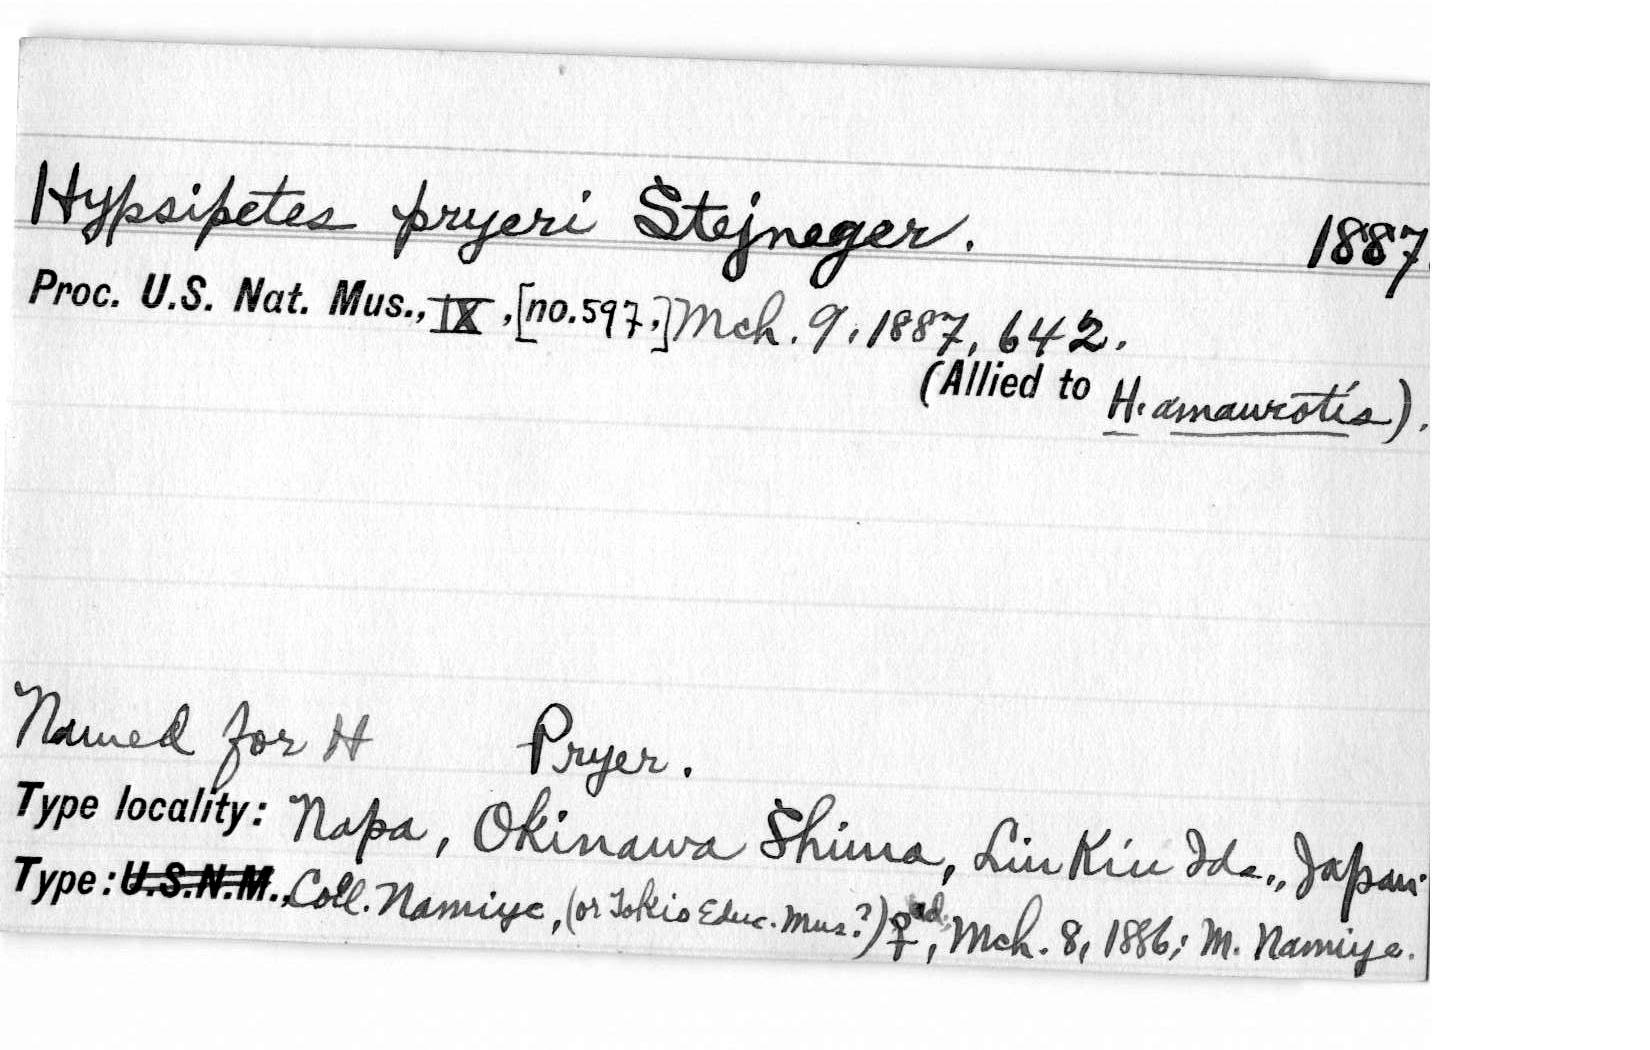 Hypsipetes pryeri Stejneger. 1887.
Proc. U.S. Nat. Mus., IX, [no.597,] Mch. 9, 1887, 642.
(Allied to H. amaurotis).
Named for H Pryer.
Type locality: Napa, Okinawa Shima, Liu Kiu Ids., Japan.
Type: U.S.N.M., Coll. Namiye, (or Tokio Educ. Mus.?) ♀ ad., Mch. 8, 1886; M. Namiye.